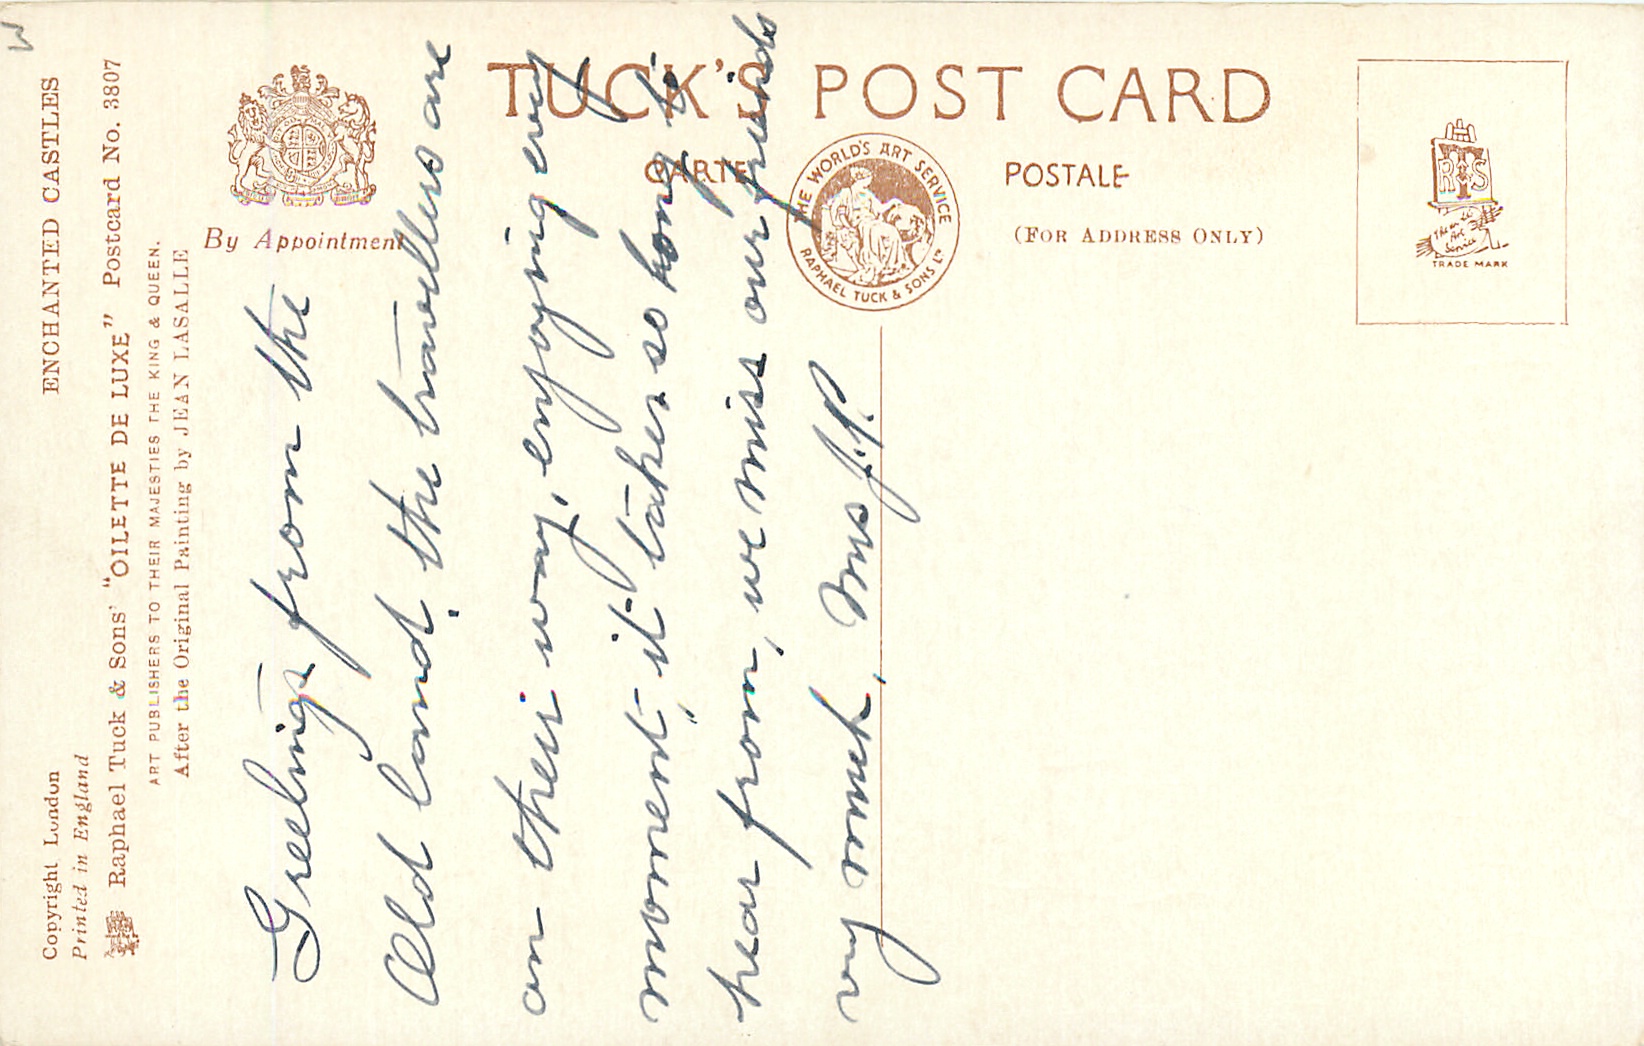 ENCHANTED CASTLES
Copyright London
Printed in England
Raphael Tuck & Sons' "OILETTE DE LUXE" Postcard No. 3807
ART PUBLISHERS TO THEIR MAJESTIES THE KING & QUEEN.
After the Original Painting by JEAN LASALLE
By Appointment
TUCK'S POST CARD
CARTE POSTALE
(FOR ADDRESS ONLY)
THE WORLD'S ART SERVICE
RAPHAEL TUCK & SONS LD
R T S
TRADE MARK
Greetings from the
Old land, the travellers are
on their way, enjoying every
moment, it takes so long to
hear from, we miss our friends
very much, Mrs J.P.